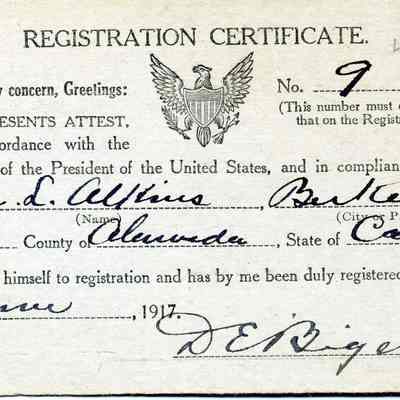 REGISTRATION CERTIFICATE.
concern, Greetings:
No. 9
(This number must
ESENTS ATTEST,
that on the Regist
ordance with the
of the President of the United States, and in complian
L. Alkins, Berke
(Name) (City or P
County of Alameda, State of Ca
himself to registration and has by me been duly registered
, 1917.
D E Bige